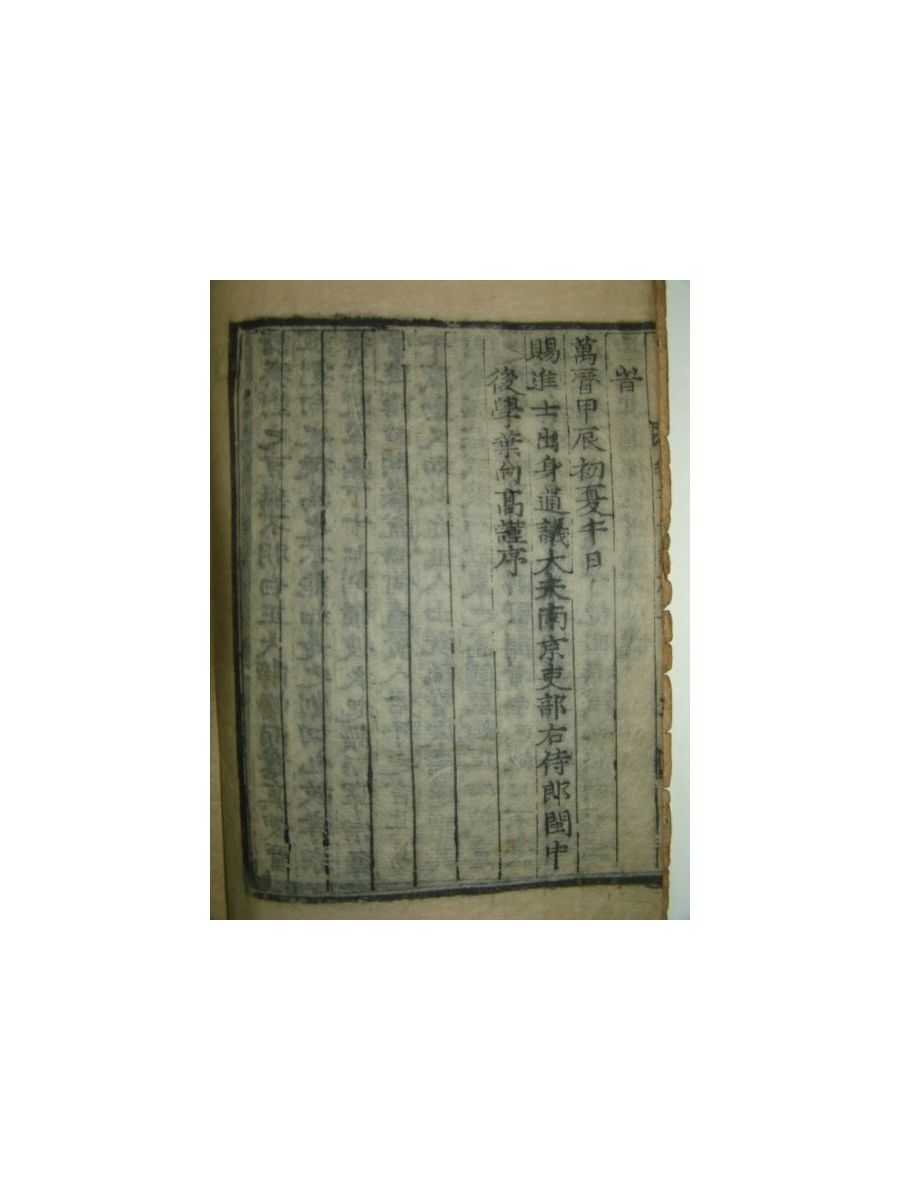 昔
萬曆甲辰初夏午日
賜進士出身通議大夫南京吏部右侍郎閩中
後學葉向高謹序